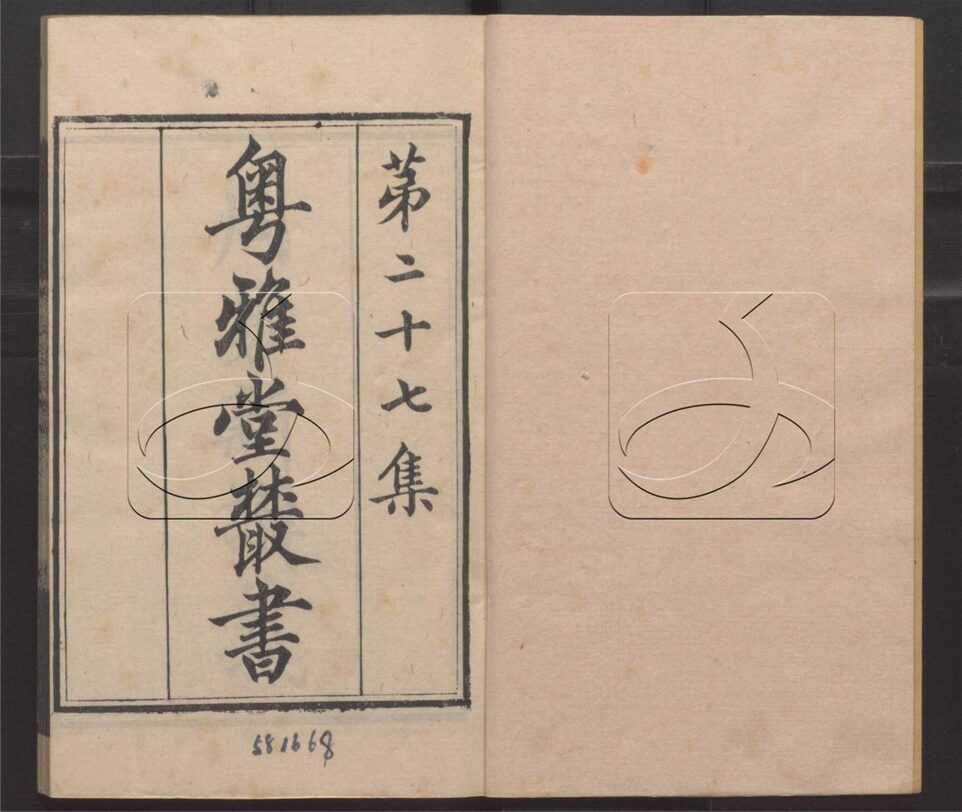 第二十七集
粤雅堂叢書
581968